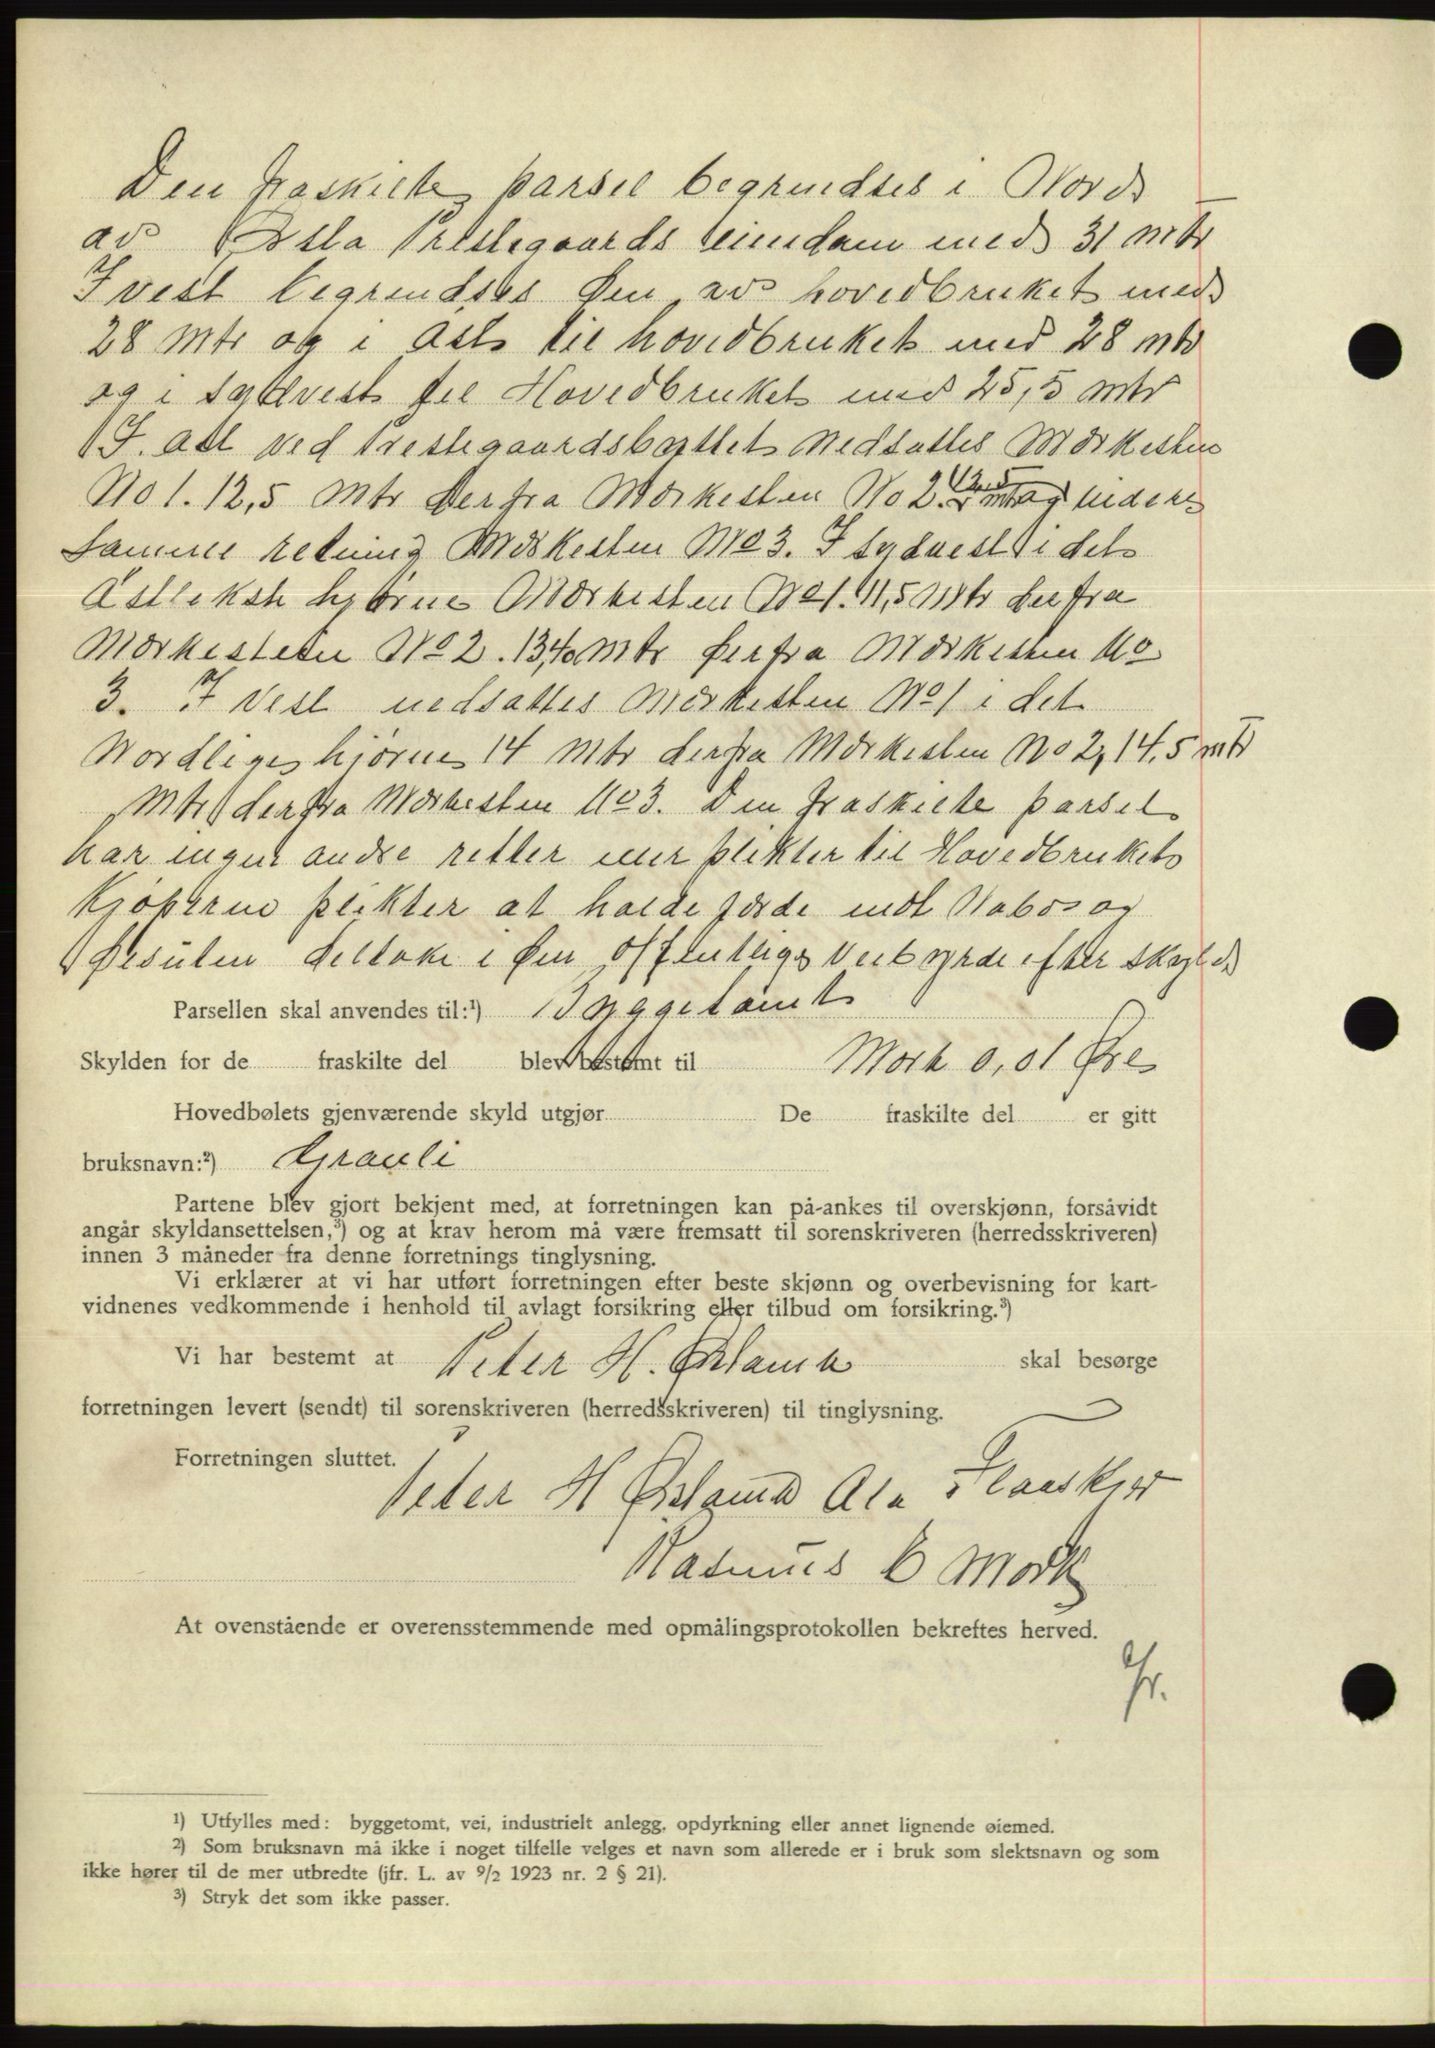 Den fraskilte parsel begrendses i Nord
av Ørsta Prestegaards eiendom med 31 mtr
I vest begrendses den av hovedbruket med
28 mtr og i Øst til hovedbruket med 28 mtr
og i sydvest til Hovedbruket med 25,5 mtr
I. øst ved Prestegaardsbyttet nedsattes Merkesten
No 1. 12,5 mtr derfra Merkesten No 2. 12,5 mtr og videre
samme retning Merkesten No 3. I sydvest i det
østlekste hjørne Merkesten No 1. 11,5 mtr derfra
Merkesten No 2. 13,40 mtr derfra Merkesten No
3. I Vest nedsattes Merkesten No 1 i det
Nordlige hjørne 14 mtr derfra Merkesten No 2, 14,5 mtr
mtr derfra Merkesten No 3. Den fraskilte parsel
har ingen andre retter eller plikter til Hovedbruket
Kjøperne plikter at holde gjerde mot Nabo og
desuten deltake i den offentlige Veibyrde efter skyld
Parsellen skal anvendes til:¹) Byggetomt
Skylden for de fraskilte del blev bestemt til Mork 0,01 Øre
Hovedbølets gjenværende skyld utgjør De fraskilte del er gitt
bruksnavn:²) Granli
Partene blev gjort bekjent med, at forretningen kan på-ankes til overskjønn, forsåvidt
angår skyldansettelsen,³) og at krav herom må være fremsatt til sorenskriveren (herredsskriveren)
innen 3 måneder fra denne forretnings tinglysning.
Vi erklærer at vi har utført forretningen efter beste skjønn og overbevisning for kart-
vidnenes vedkommende i henhold til avlagt forsikring eller tilbud om forsikring.³)
Vi har bestemt at Peter H. Ørslamd skal besørge
forretningen levert (sendt) til sorenskriveren (herredsskriveren) til tinglysning.
Forretningen sluttet.
Peter H Ørslamd Ola Flaaskjer
Rasmus E Mork
At ovenstående er overensstemmende med opmålingsprotokollen bekreftes herved.
¹) Utfylles med: byggetomt, vei, industrielt anlegg, opdyrkning eller annet lignende øiemed.
²) Som bruksnavn må ikke i noget tilfelle velges et navn som allerede er i bruk som slektsnavn og som
ikke hører til de mer utbredte (jfr. L. av 9/2 1923 nr. 2 § 21).
³) Stryk det som ikke passer.